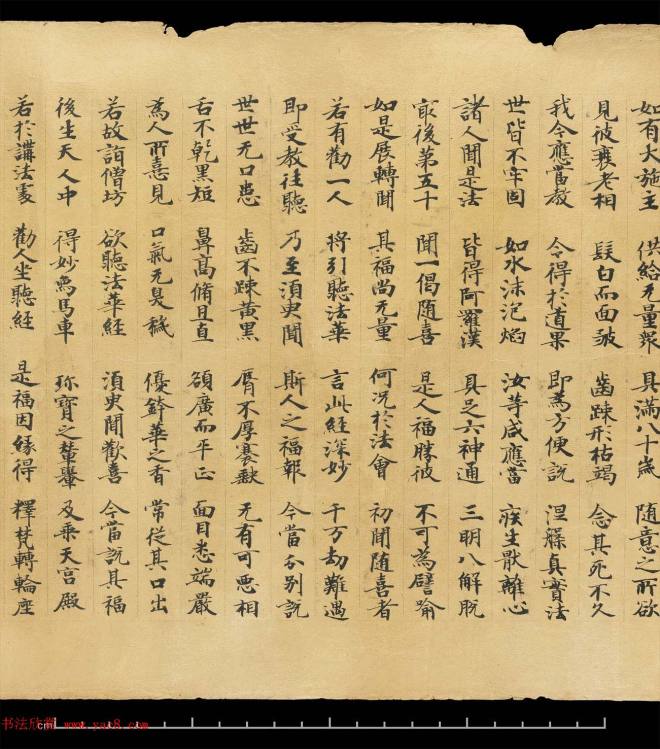 如有大施主 供給无量衆 具滿八十歲 随意之所欲
見彼衰老相 髮白而面皺 齒踈形枯竭 念其死不久
我今應當教 令得於道果 即為方便說 涅槃真實法
世皆不牢固 如水沫泡焰 汝等咸應當 疾生猒離心
諸人聞是法 皆得阿羅漢 具足六神通 三明八解脫
寂後第五十 聞一偈随喜 是人福勝彼 不可為譬喻
如是展轉聞 其福尚无量 何况於法會 初聞随喜者
若有勸一人 將引聽法華 言此經深妙 千万劫難遇
即受教往聽 乃至須臾聞 斯人之福報 今當分別說
世世无口患 齒不踈黃黑 脣不厚褰缺 无有可惡相
舌不乾黑短 鼻高脩且直 額廣而平正 面目悉端嚴
為人所憙見 口氣无臭穢 優鉢華之香 常從其口出
若故詣僧坊 欲聽法華經 須臾聞歡喜 今當說其福
後生天人中 得妙烏馬車 珎寶之輦轝 及乘天宮殿
若於講法處 勸人坐聽經 是福因緣得 釋梵轉輪座
书法欣赏 www.yac8.com
cm